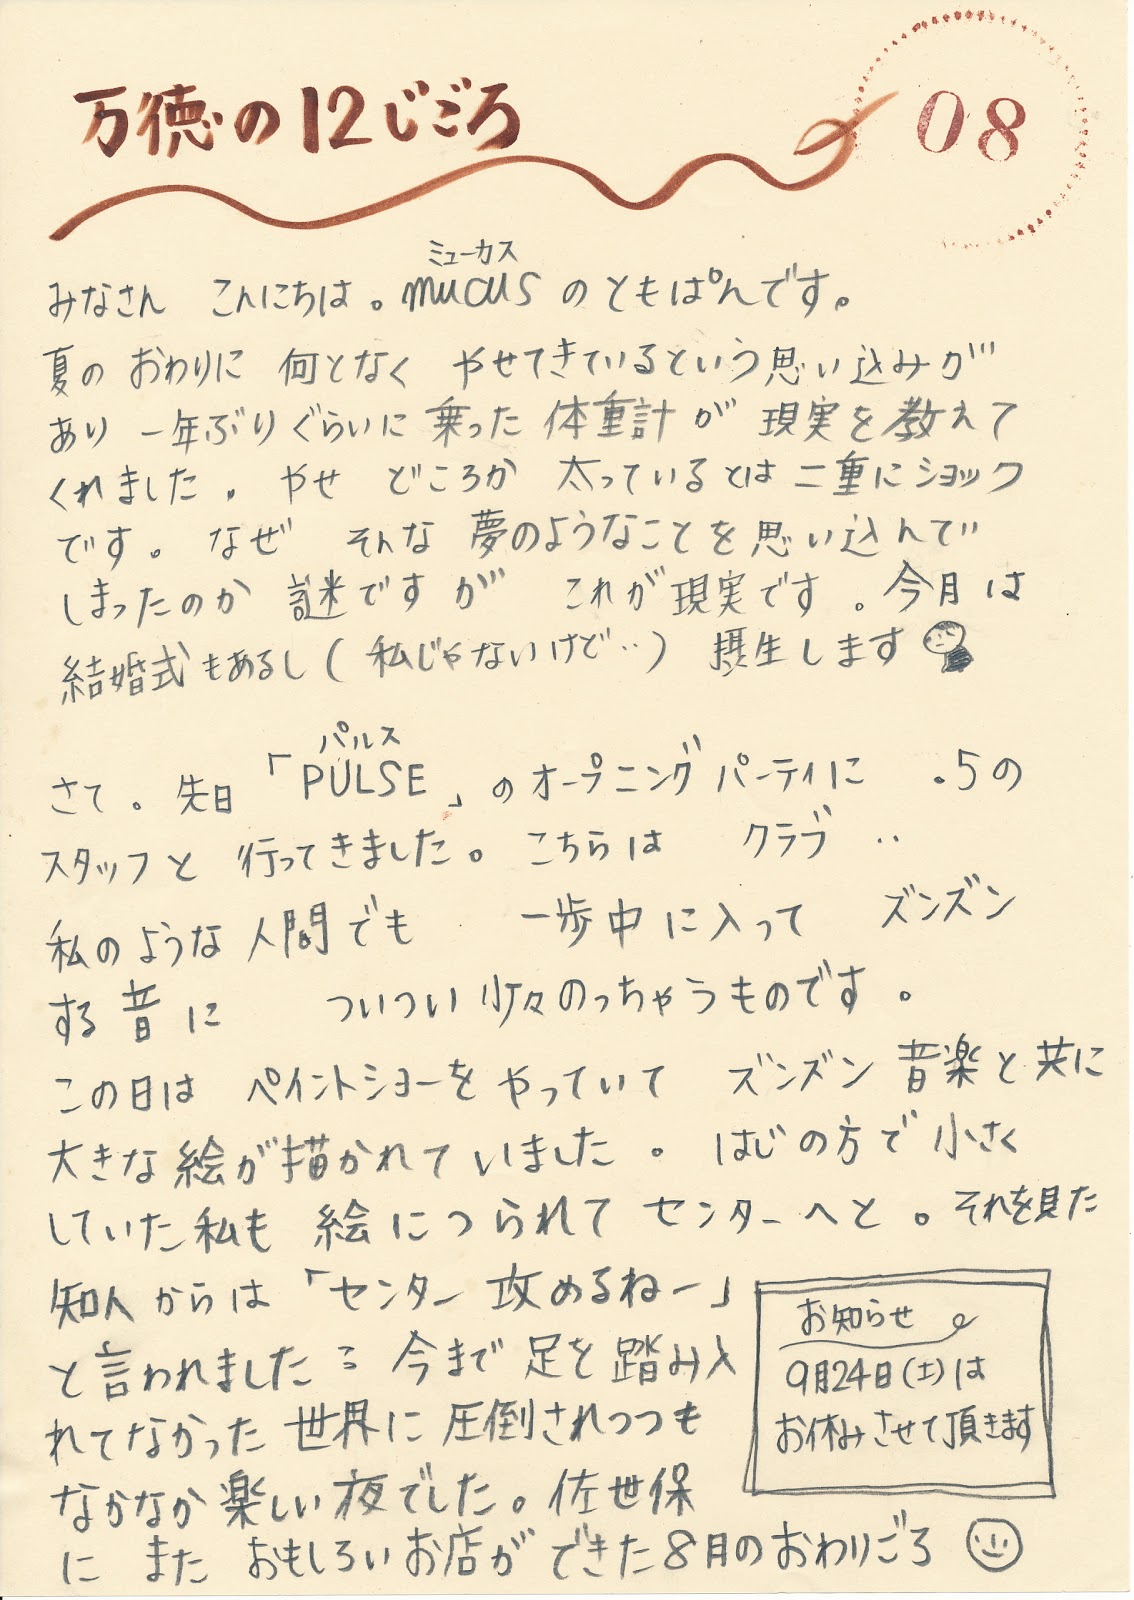 万徳の12じごろ
08
ミューカス
みなさん こんにちは。mucusのともぱんです。
夏のおわりに 何となく やせてきているという思い込みが
あり 一年ぶりぐらいに乗った体重計が 現実を教えて
くれました。やせ どころか 太っているとは二重にショック
です。なぜ そんな夢のようなことを思い込んで
しまったのか 謎ですが これが現実です。今月は
結婚式もあるし(私じゃないけど‥) 摂生します
パルス
さて。先日「PULSE」のオープニングパーティに .5の
スタッフと 行ってきました。こちらは クラブ‥
私のような人間でも 一歩中に入って ズンズン
する音に ついつい少々のっちゃうものです。
この日は ペイントショーをやっていて ズンズン音楽と共に
大きな絵が描かれていました。はじの方で小さく
していた私も 絵につられてセンターへと。それを見た
知人からは「センター攻めるねー」
と言われました 今まで足を踏み入
れてなかった世界に圧倒されつつも
なかなか楽しい夜でした。佐世保
に また おもしろいお店ができた8月のおわりごろ
お知らせ
9月24日(土)は
お休みさせて頂きます